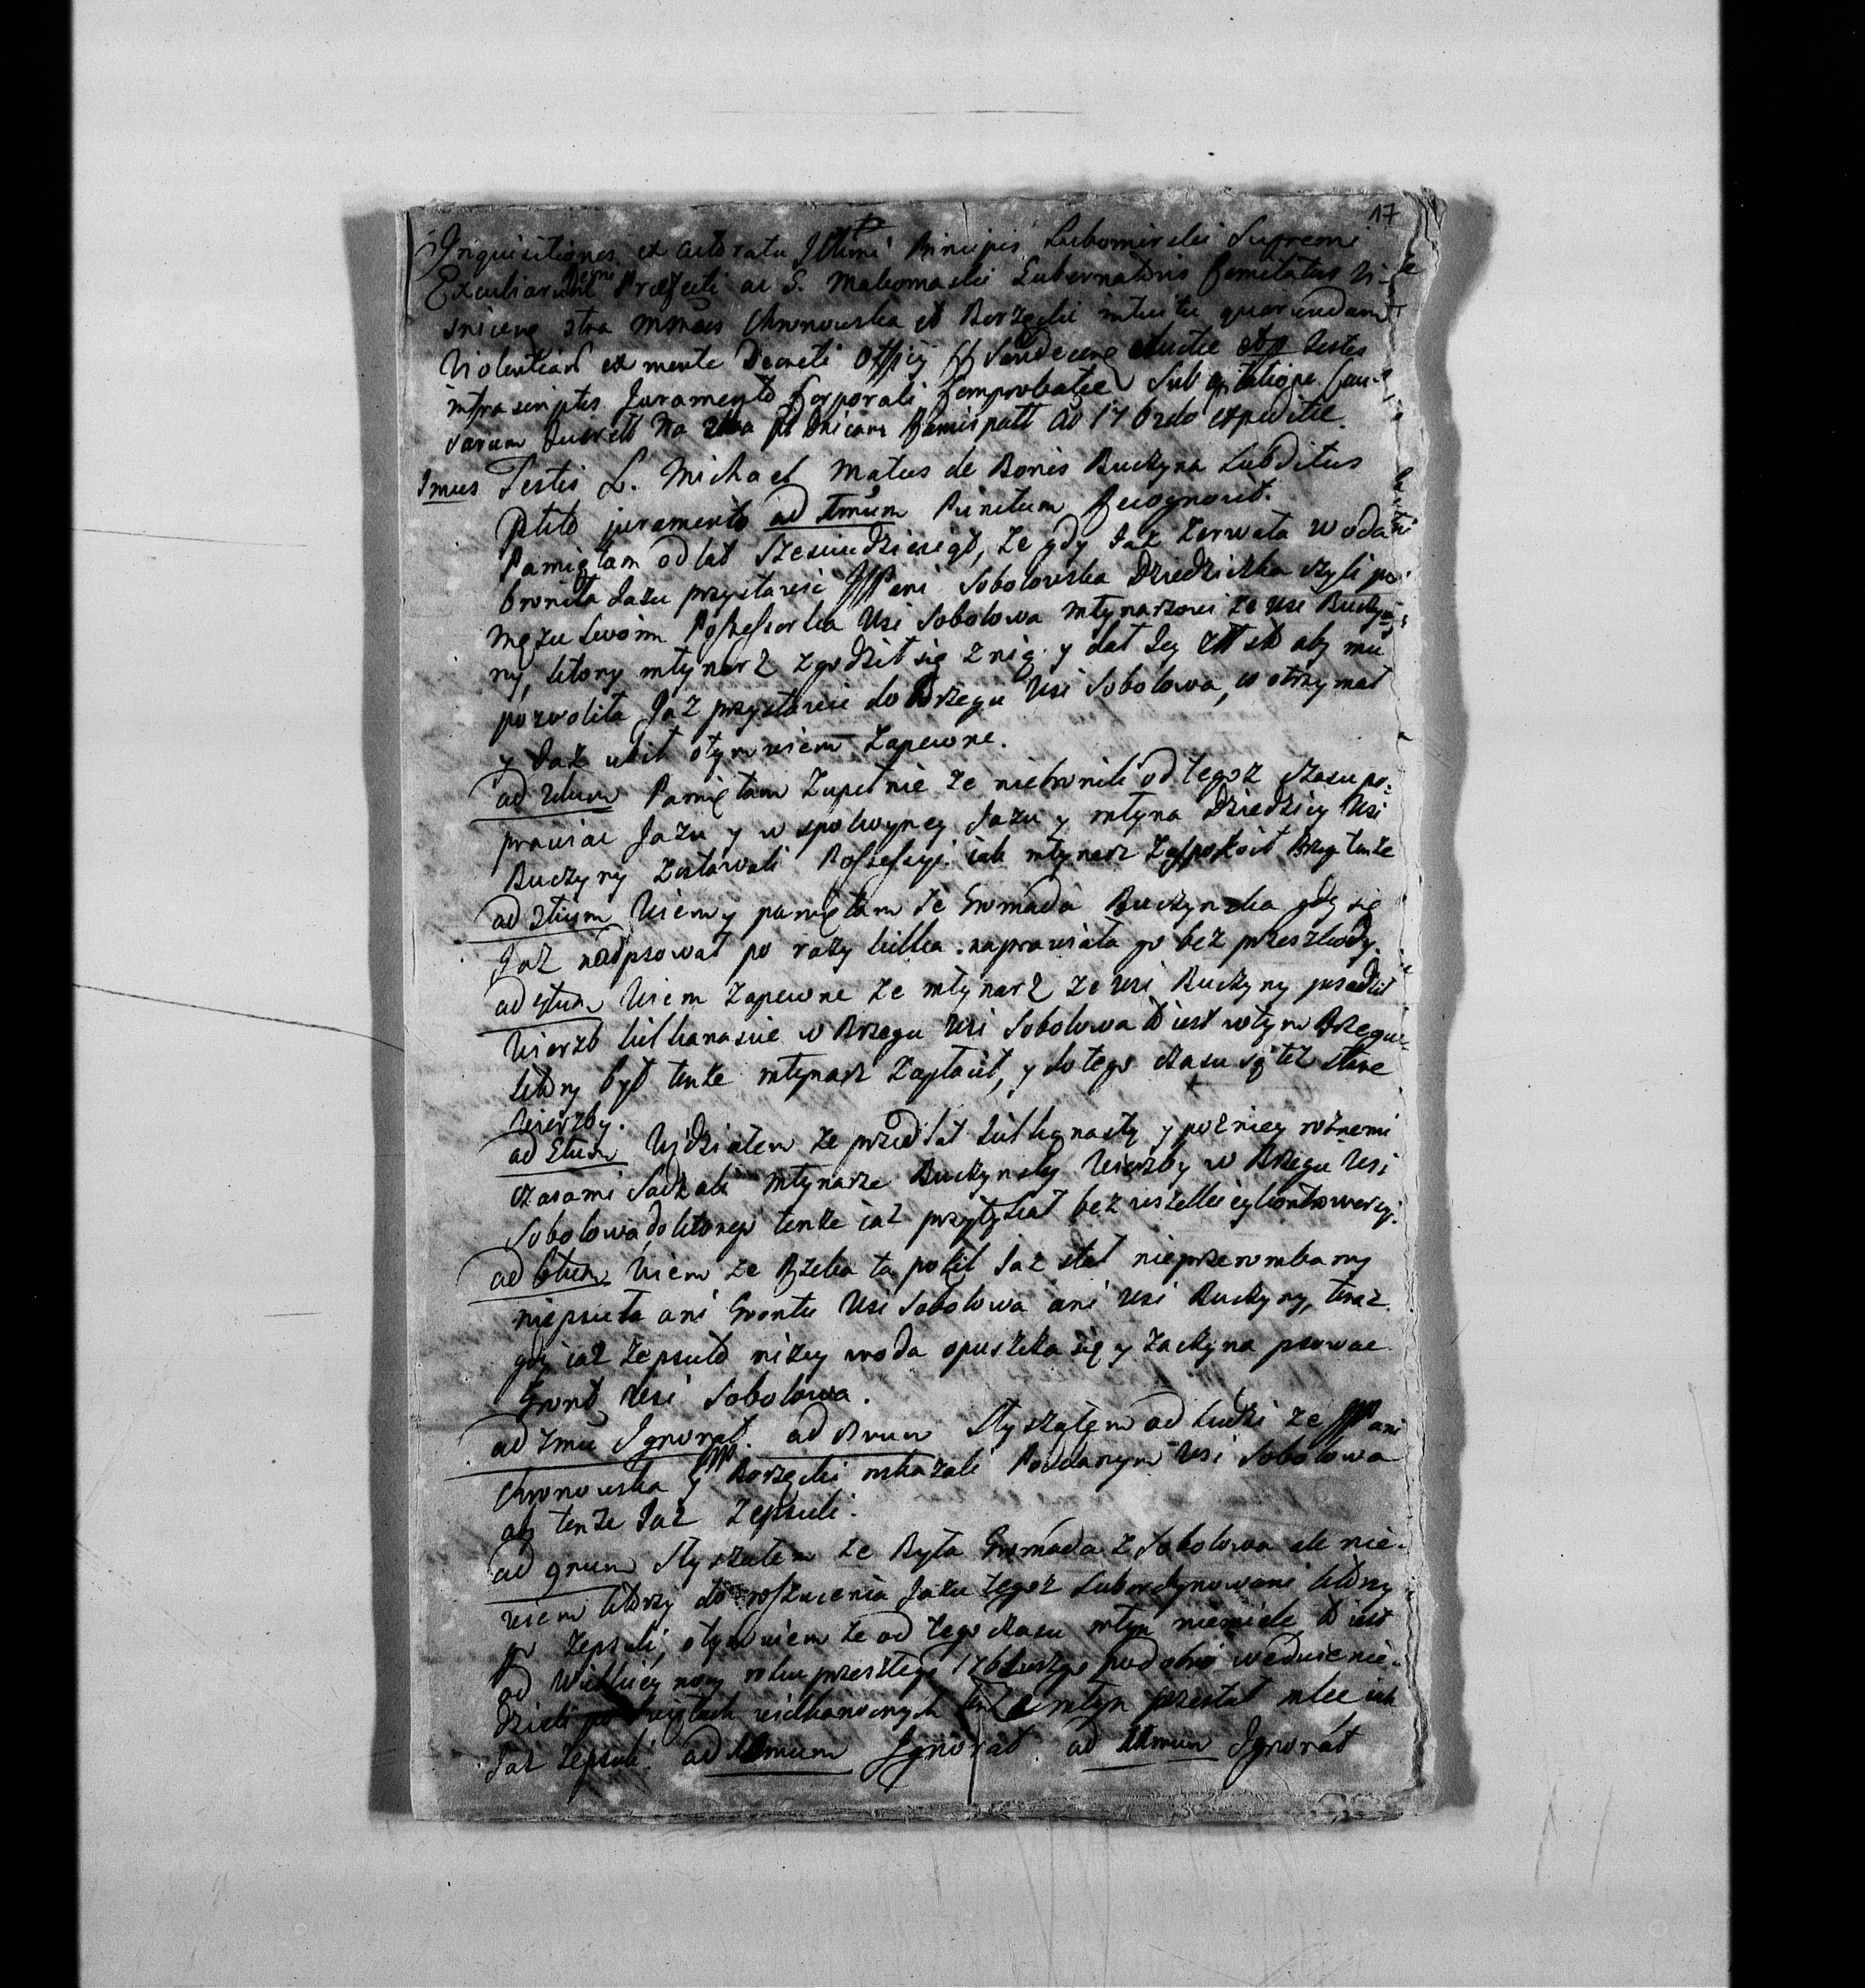 17
Inquisitiones ex actoratu Illmi Principis Lubomirski Supremi
Excubiarum Regni Præfecti ac G. Makomaski Gubernatoris Comitatus Vi-
snicens ctra Mgnificos Chronowska et Borzęcki intuitu quarundam
Violentiarum ex mente Decreti Officij Sandecens ductæ Testes
infrascriptos Juramento Corporali Comprobatæ Sub cau-
sarum Querell Na pt Dnicam Ao 1762do expeditæ.
1mus Testis L. Michael Matus de Bonis Buczyna Subditus
Ptito juramento ad 1mum Punctum Recognovit.
Pamiętam od lat Szesciudziesiąt, że gdy Jaz zerwała woda
broniła Jazu przystawić JPani Sobolowska Dziedziczka czyli po
mężu swoim Possessorka Wsi Sobolowa młynarzowi ze Wsi Buczy-
ny, ktory młynarz zgodził się z nią y dał Jey aby mu
pozwoliła Jaz przystawić do Brzegu Wsi Sobolowa, co otrzymał
y Jaz ubił otym wiem zapewne.
ad 2dum Pamiętam zupełnie że niebronili od tegoż czasu po-
prawiac Jazu y w spokoyney Jazu y młyna Dziedzicy Wsi
Buczyny zostawali Possessyi. iak młynarz zaspokoił Brzeg tenże
ad 3tium Wiem y pamiętam że Gromada Buczynska gdy się
Jaz nadpsował po razy kilka naprawiała go bez przeszkody.
ad 4tum Wiem zapewne że młynarz ze Wsi Buczyny posadził
Wierzb kilkanascie w Brzegu Wsi Sobolowa to iest wtym Brzegu
ktory był tenże młynarz zapłacił, y do tego czasu są też stare
Wierzby.
ad 5tum Widziałem że przed lat kilkunasty y pozniey rożnemi
czasami sadzali młynarze Buczynsky Wierzby w Brzegu Wsi
Sobolowa, do ktorego tenże iaz przytykał bez wszelkiey kontrowersyi.
ad 6tum Wiem że Rzeka ta pokił Jaz stał nieprzerombany
niepsuła ani Grontu Wsi Sobolowa ani Wsi Buczyny, teraz
gdy iaz zepsuto niżey woda opuszcza się y zaczyna psowac
Gront Wsi Sobolowa.
ad 7mu Ignorat. ad 8vum Słyszałem od Ludzi że JPani
Chronowska y JP Borzęcki nakazali Poddanym Wsi Sobolowa
aby tenże Jaz zepsuli.
ad 9num Słyszałem że Była Gromada z Sobolowa ale nie-
wiem ktorzy do rozrzucenia Jazu tegoż Subordynowani ktorzy
go zepsuli, otym wiem że od tego czasu młyn niemiele, to iest
od Wielkiey nocy roku przeszłego podobno wedwie nie-
dzieli po Swiętach wielkanocnych tenże młyn przestał mlec iak
Jaz zepsuli. ad 10mum Ignorat. ad 11mum Ignorat